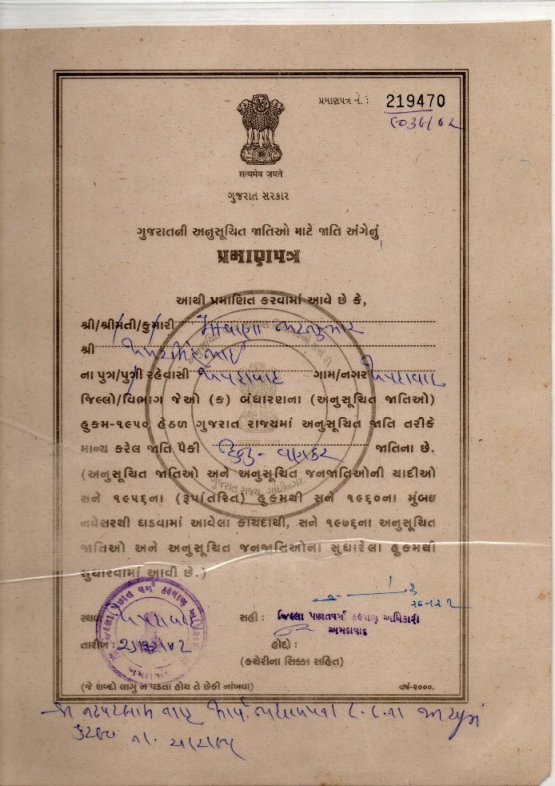 પ્રમાણપત્ર નં. : 219470
સત્યમેવ જયતે
ગુજરાત સરકાર
ગુજરાતની અનુસૂચિત જાતિઓ માટે જાતિ અંગેનું
પ્રમાણપત્ર
આથી પ્રમાણિત કરવામાં આવે છે કે,
શ્રી/શ્રીમતી/કુમારી
શ્રી
ના પુત્ર/પુત્રી રહેવાસી ગામ/નગર
જિલ્લો/વિભાગ જેઓ (ક) બંધારણના (અનુસૂચિત જાતિઓ)
હુકમ-૧૯૫૦ હેઠળ ગુજરાત રાજ્યમાં અનુસૂચિત જાતિ તરીકે
માન્ય કરેલ જાતિ પૈકી હિન્દુ - વણકર જાતિના છે.
(અનુસૂચિત જાતિઓ અને અનુસૂચિત જનજાતિઓની યાદીઓ
સને ૧૯૫૬ના (રૂપાંતરિત) હુકમથી સને ૧૯૬૦ના મુંબઇ
નવેસરથી ઘડવામાં આવેલા કાયદાથી, સને ૧૯૭૬ના અનુસૂચિત
જાતિઓ અને અનુસૂચિત જનજાતિઓના સુધારેલા હુકમથી
સુધારવામાં આવી છે.)
સ્થળ :
સહી : જિલ્લા પછાતવર્ગ કલ્યાણ અધિકારી
અમદાવાદ
તારીખ :
હોદ્દો :
(કચેરીના સિક્કા સહિત)
(જે શબ્દો લાગુ ન પડતા હોય તે છેકી નાંખવા)
વર્ષ-૨૦૦૦.